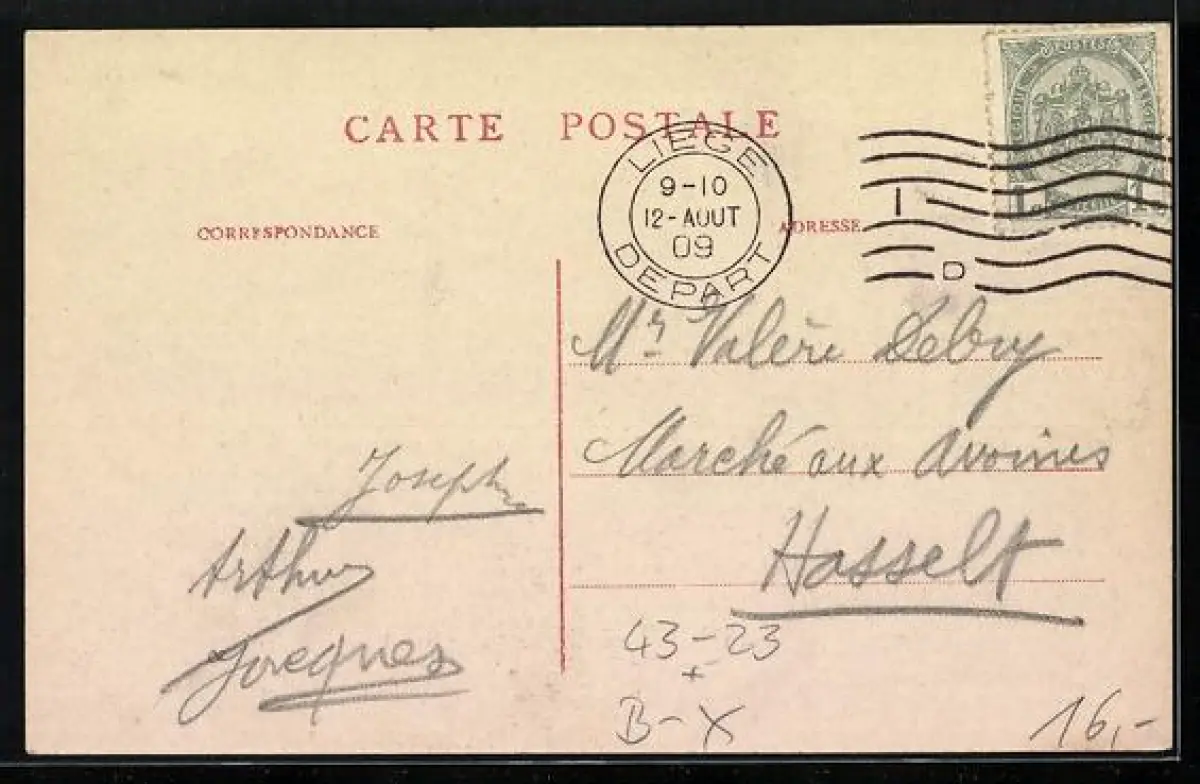 CARTE POSTALE
CORRESPONDANCE
ADRESSE
LIEGE
9-10
12-AOUT
09
DEPART
1
D
POSTES
1 1
Mr Valère Debruy
Marché aux Avoines
Hasselt
Joseph
Arthur
Jacques
43-23
+
B-X
16,-